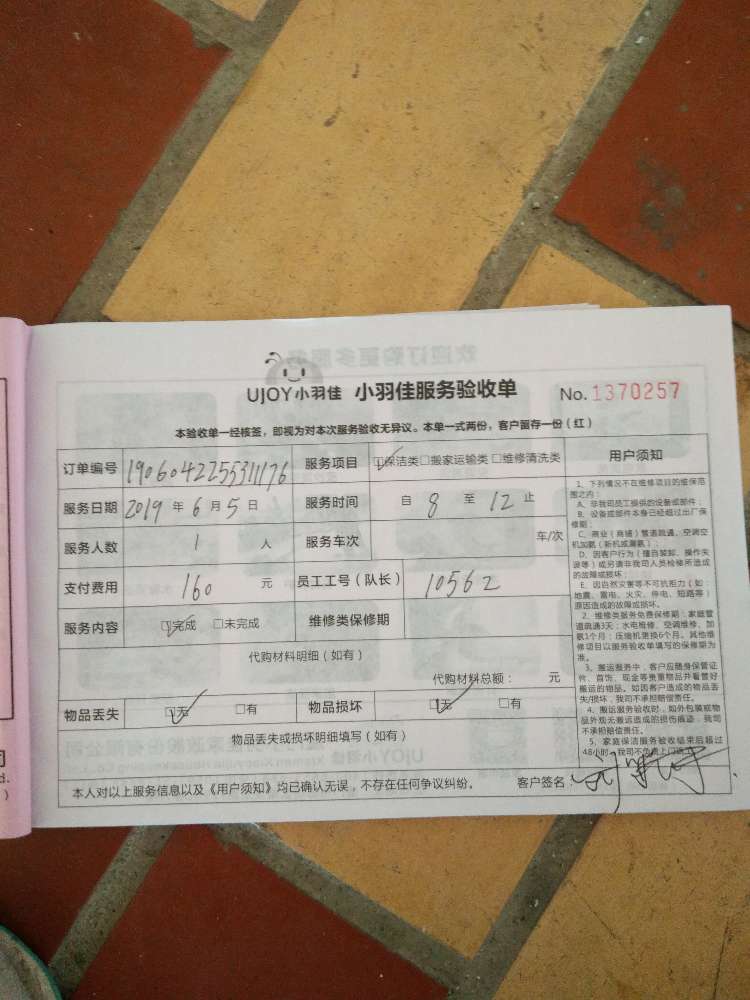 UJOY小羽佳 小羽佳服务验收单 No.1370257
本验收单一经核签，即视为对本次服务验收无异议。本单一式两份，客户留存一份（红）
订单编号 1906042255311176 服务项目 ☑保洁类☐搬家运输类☐维修清洗类
服务日期 2019 年 6 月 5 日 服务时间 自 8 至 12 止
服务人数 1 人 服务车次 车/次
支付费用 160 元 员工工号（队长） 10562
服务内容 ☑完成 ☐未完成 维修类保修期
代购材料明细（如有）
代购材料总额： 元
物品丢失 ☑无 ☐有 物品损坏 ☑无 ☐有
物品丢失或损坏明细填写（如有）
本人对以上服务信息以及《用户须知》均已确认无误，不存在任何争议纠纷。 客户签名：
用户须知
1、下列情况不在维修项目的维保范
围之内：
A、非我司员工提供的设备或部件；
B、设备或部件本身已经烟过出厂保
修期；
C、商业（商铺）管道疏通、空调空
机加氨（新机或漏氨）；
D、因客户行为（擅自装卸、操作失
误等）或另请非我司人员检修所造成
的故障或损坏；
E、因自然灾害等不可抗拒力（如：
地震、雷电、火灾、停电、短路等）
原因造成的故障或损坏。
2、维修类服务免费保修期：家庭管
道疏通3天；水电维修、空调维修、加
氨1个月；压缩机更换6个月。其他维
修项目以服务验收单填写的保修期为
准。
3、搬运服务中，客户应随身保管证
件、首饰、现金等贵重物品并看管好
搬运的物品。如因客户造成的物品丢
失/损坏，我司不承担赔偿责任。
4、搬运服务验收时，如外包装或物
品外观无搬运造成的损伤痕迹，我司
不承担赔偿责任。
5、家庭保洁服务验收结束后超过
48小时，我司不负责上门